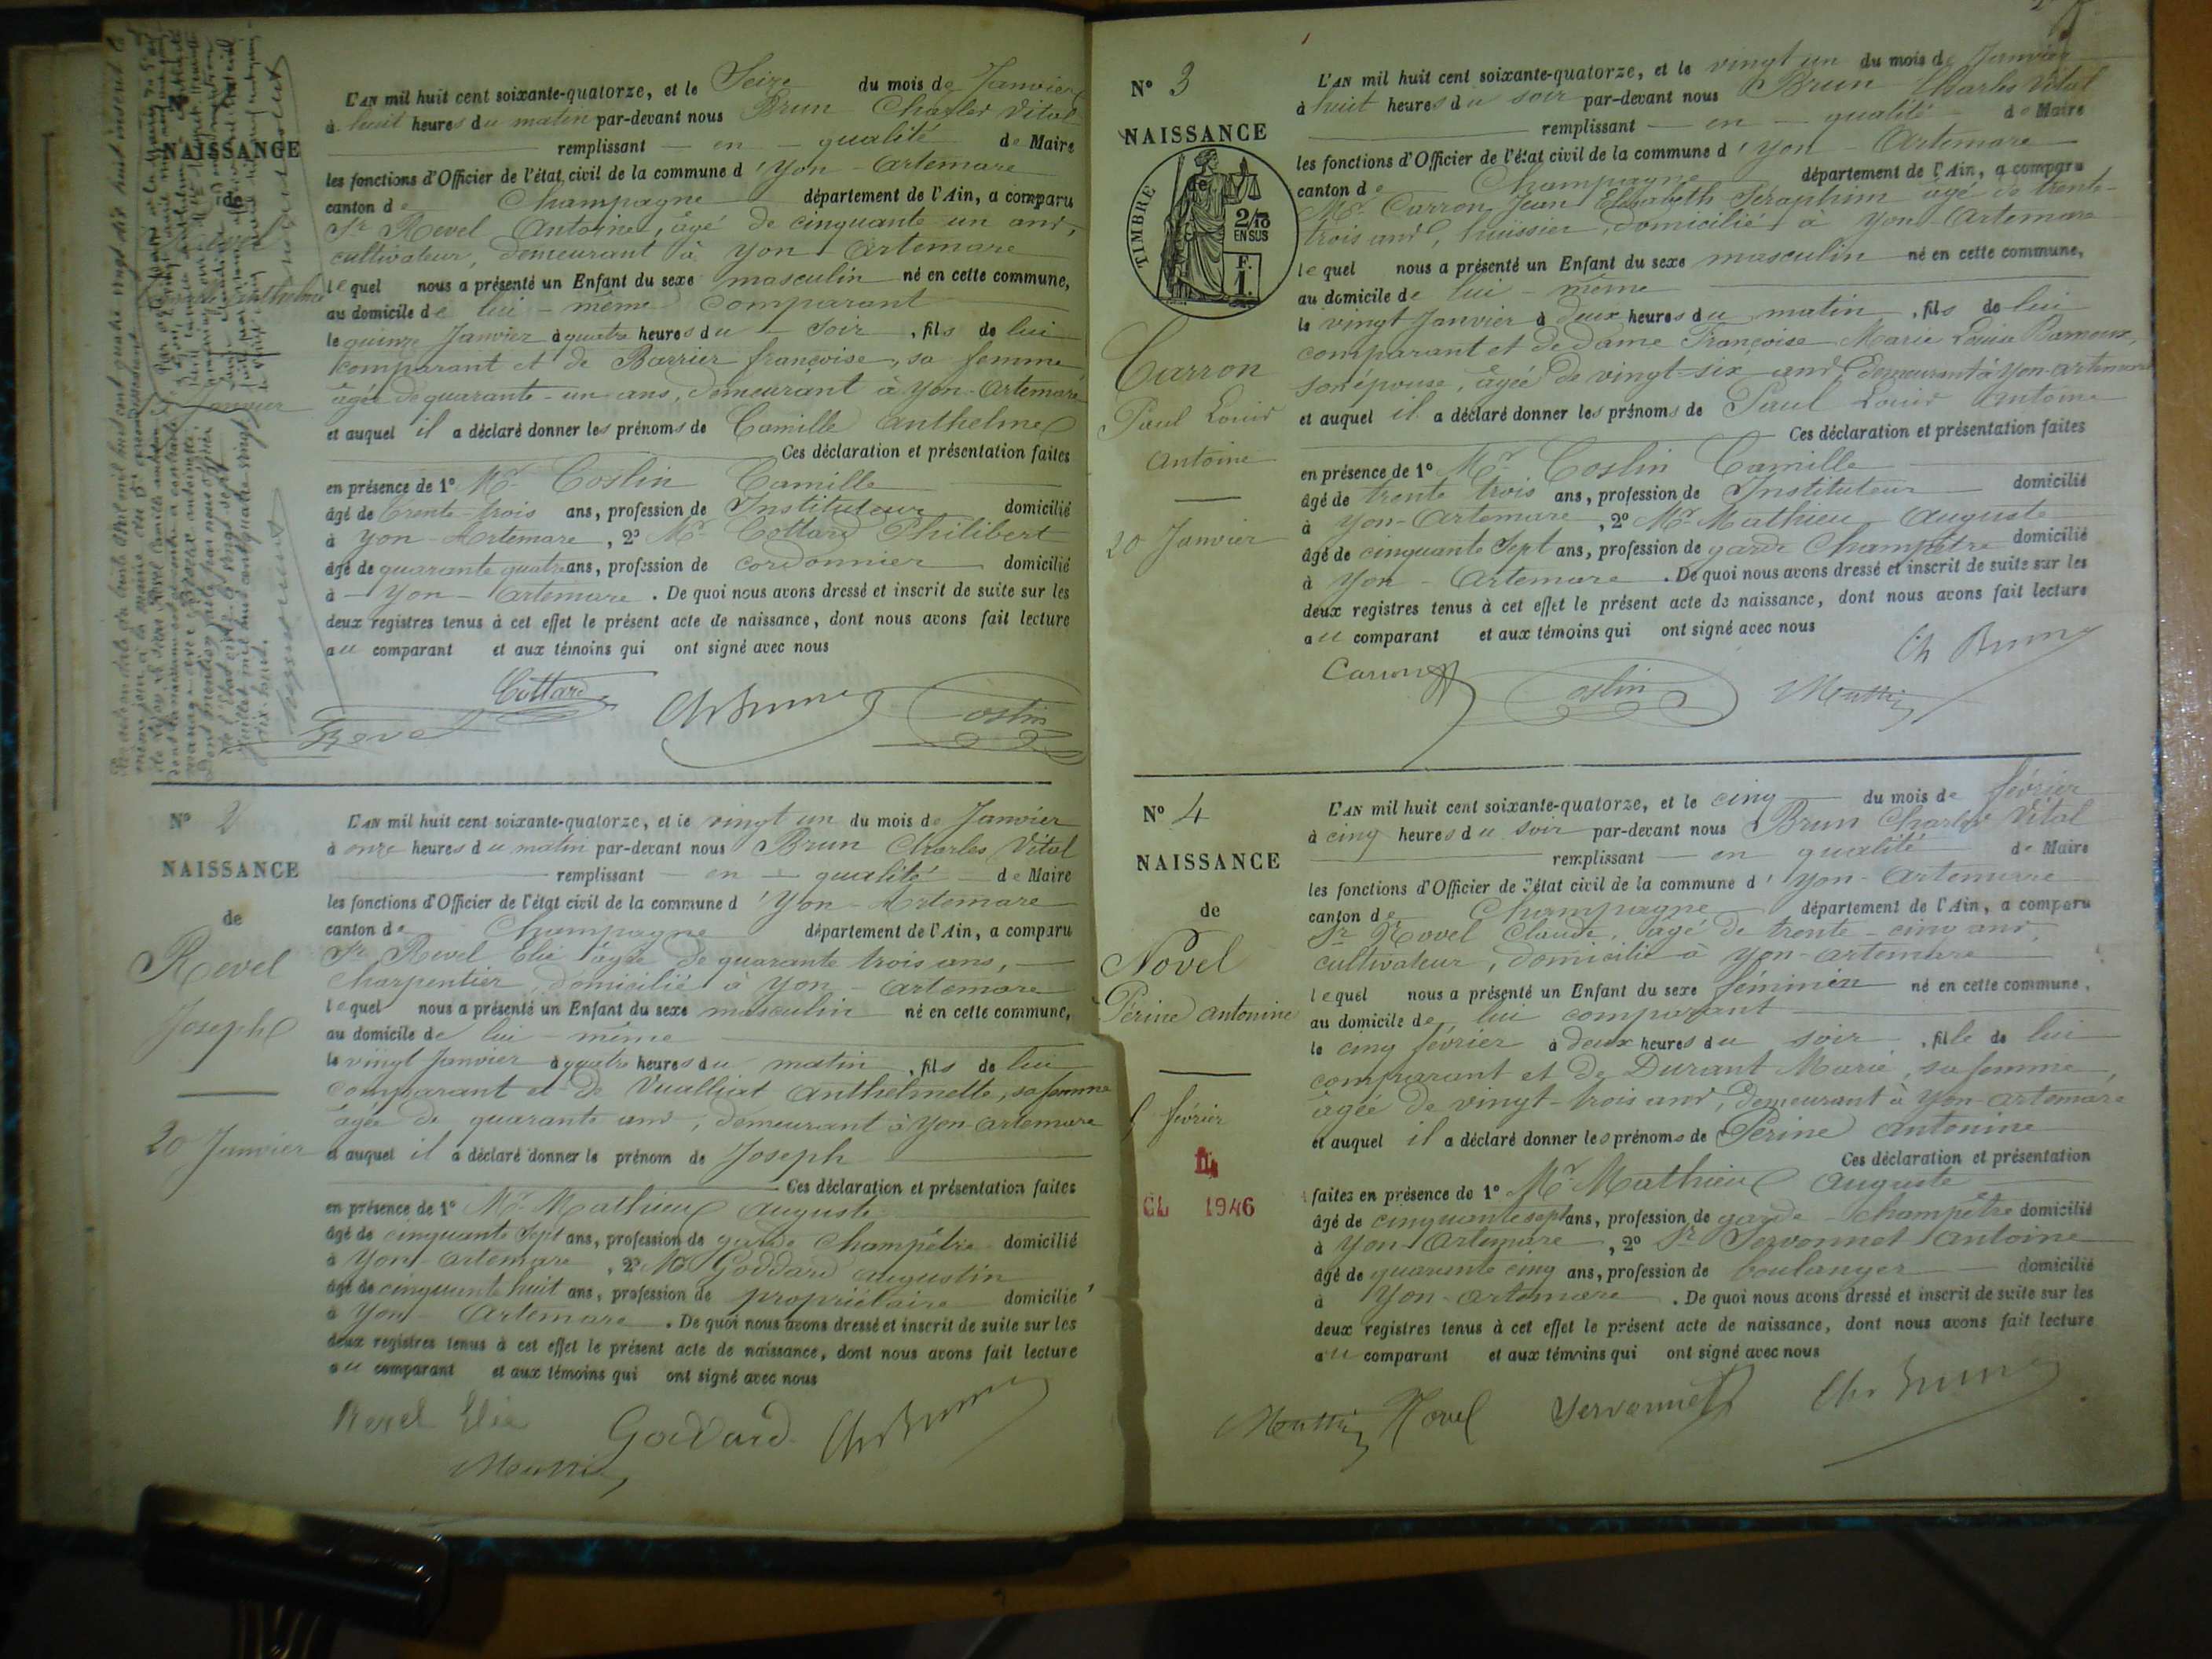 NAISSANCE
de
Janvier
L'AN mil huit cent soixante-quatorze, et le Seize du mois de Janvier
à huit heures du matin par-devant nous Brun Charles Vital
remplissant en qualité de Maire
les fonctions d'Officier de l'état civil de la commune d'Yon-Artemare
canton de Champagne département de l'Ain, a comparu
Sr Revel Antoine, âgé de cinquante un ans,
cultivateur, demeurant à Yon-Artemare
lequel nous a présenté un Enfant du sexe masculin né en cette commune,
au domicile de lui-même comparant
le quinze Janvier à quatre heures du soir, fils de lui
comparant et de Barrier françoise, sa femme
âgée de quarante-un ans, demeurant à Yon-Artemare
et auquel il a déclaré donner les prénoms de Camille Anthelme
Ces déclaration et présentation faites
en présence de 1º Mr Coslin Camille
âgé de trente-trois ans, profession de Instituteur domicilié
à Yon-Artemare, 2º Mr Cottard Philibert
âgé de quarante quatre ans, profession de cordonnier domicilié
à Yon-Artemare. De quoi nous avons dressé et inscrit de suite sur les
deux registres tenus à cet effet le présent acte de naissance, dont nous avons fait lecture
au comparant et aux témoins qui ont signé avec nous
Cottard
Revel Ch Brun Coslin
Nº 2
NAISSANCE
de
Revel
Joseph
20 Janvier
L'AN mil huit cent soixante-quatorze, et le vingt un du mois de Janvier
à onze heures du matin par-devant nous Brun Charles Vital
remplissant en qualité de Maire
les fonctions d'Officier de l'état civil de la commune d'Yon-Artemare
canton de Champagne département de l'Ain, a comparu
Sr Revel Elie âgé de quarante trois ans,
charpentier, domicilié à Yon-Artemare
lequel nous a présenté un Enfant du sexe masculin né en cette commune,
au domicile de lui-même
le vingt Janvier à quatre heures du matin, fils de lui
comparant et de Vualliat Anthelmette, sa femme
âgée de quarante ans, demeurant à Yon-Artemare
et auquel il a déclaré donner le prénom de Joseph
Ces déclaration et présentation faites
en présence de 1º Mr Mathieu Auguste
âgé de cinquante sept ans, profession de garde champêtre domicilié
à Yon-Artemare, 2º Mr Goddard Augustin
âgé de cinquante huit ans, profession de propriétaire domicilié
à Yon-Artemare. De quoi nous avons dressé et inscrit de suite sur les
deux registres tenus à cet effet le présent acte de naissance, dont nous avons fait lecture
au comparant et aux témoins qui ont signé avec nous
Revel Elie Goddard Ch Brun
Nº 3
NAISSANCE
de
TIMBRE
2/10
EN SUS
F.
1.
Carron
Paul Louis
Antoine
20 Janvier
L'AN mil huit cent soixante-quatorze, et le vingt un du mois de Janvier
à huit heures du soir par-devant nous Brun Charles Vital
remplissant en qualité de Maire
les fonctions d'Officier de l'état civil de la commune d'Yon-Artemare
canton de Champagne département de l'Ain, a comparu
Mr Carron Jean Elisabeth Séraphim âgé de trente-
trois ans, huissier, domicilié à Yon-Artemare
lequel nous a présenté un Enfant du sexe masculin né en cette commune,
au domicile de lui-même
le vingt Janvier à deux heures du matin, fils de lui
comparant et de Dame Françoise Marie Louise
son épouse, âgée de vingt-six ans Demeurant à Yon-Artemare
et auquel il a déclaré donner les prénoms de Paul Louis Antoine
Ces déclaration et présentation faites
en présence de 1º Mr Coslin Camille
âgé de trente trois ans, profession de Instituteur domicilié
à Yon-Artemare, 2º Mr Mathieu Auguste
âgé de cinquante Sept ans, profession de garde Champêtre domicilié
à Yon-Artemare. De quoi nous avons dressé et inscrit de suite sur les
deux registres tenus à cet effet le présent acte de naissance, dont nous avons fait lecture
au comparant et aux témoins qui ont signé avec nous
Carron Coslin Ch Brun
Nº 4
NAISSANCE
de
Novel
Périne Antonine
5 février
CL 1946
L'AN mil huit cent soixante-quatorze, et le cinq du mois de février
à cinq heures du soir par-devant nous Brun Charles Vital
remplissant en qualité de Maire
les fonctions d'Officier de l'état civil de la commune d'Yon-Artemare
canton de Champagne département de l'Ain, a comparu
Sr Novel Claude, âgé de trente-cinq ans,
cultivateur, domicilié à Yon-Artemare
lequel nous a présenté un Enfant du sexe féminin né en cette commune,
au domicile de lui comparant
le cinq février à deux heures du soir, fille de lui
comparant et de Durant Marie, sa femme,
âgée de vingt-trois ans, demeurant à Yon-Artemare
et auquel il a déclaré donner les prénoms de Périne Antonine
Ces déclaration et présentation
faites en présence de 1º Mr Mathieu Auguste
âgé de cinquante sept ans, profession de garde-champêtre domicilié
à Yon-Artemare, 2º Sr Servonnet Antoine
âgé de quarante cinq ans, profession de boulanger domicilié
à Yon-Artemare. De quoi nous avons dressé et inscrit de suite sur les
deux registres tenus à cet effet le présent acte de naissance, dont nous avons fait lecture
au comparant et aux témoins qui ont signé avec nous
Novel Servonnet Ch Brun